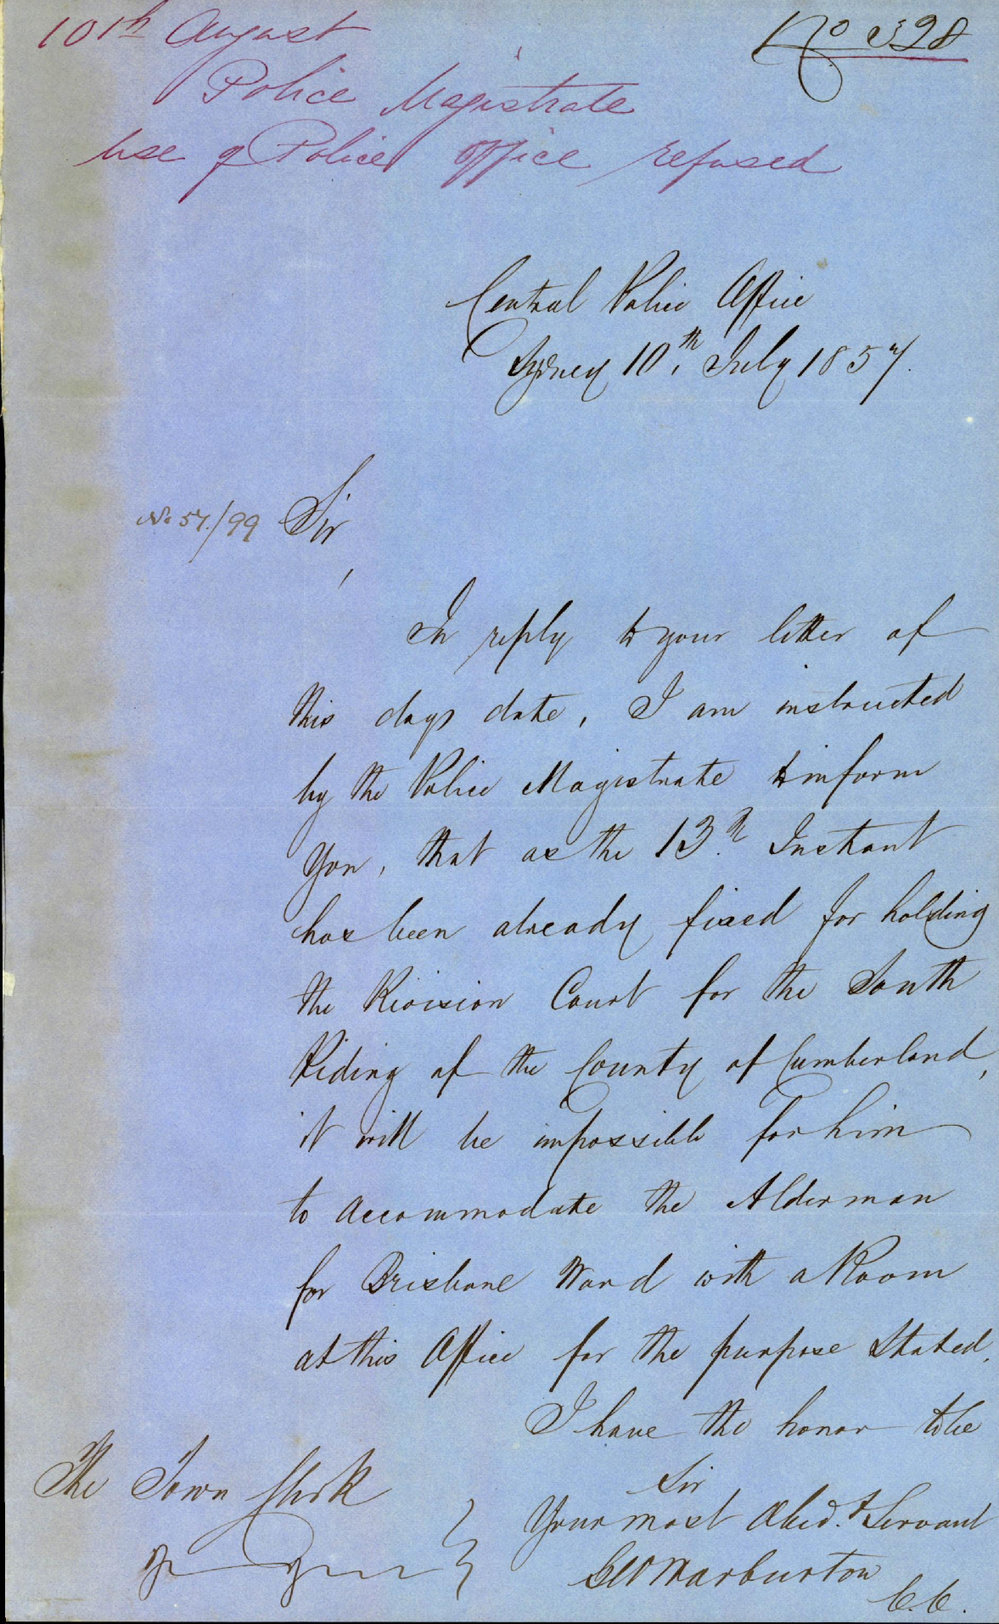 10th August
No 328
Police Magistrate
Use of Police Office refused
Central Police Office
Sydney 10th July 1857.
No 57/99 Sir,
In reply to your letter of
this days date, I am instructed
by the Police Magistrate to inform
You, that as the 13th Instant
has been already fixed for holding
the Revision Court for the South
Riding of the County of Cumberland,
it will be impossible for him
to accommodate the Alderman
for Brisbane Ward with a Room
at this Office for the purpose stated.
I have the honor to be
Sir
Your most Obed.t Servant
Warburton
C.C.
The Town Clerk